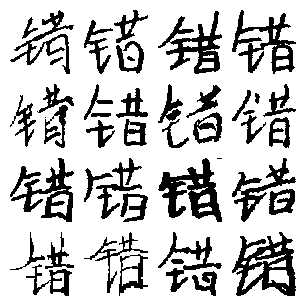 错错错错
错错错错
错错错错
错错错错